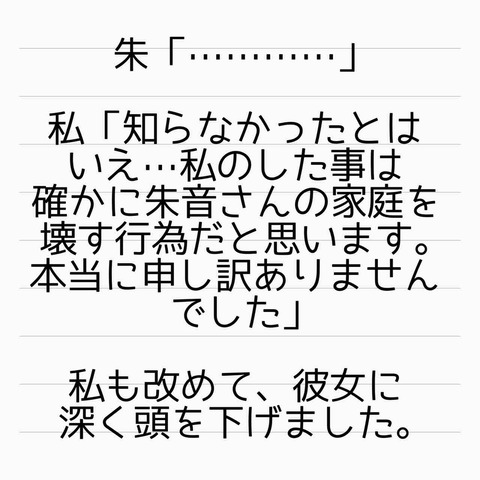 朱「…………」
私「知らなかったとは
いえ…私のした事は
確かに朱音さんの家庭を
壊す行為だと思います。
本当に申し訳ありません
でした」
私も改めて、彼女に
深く頭を下げました。